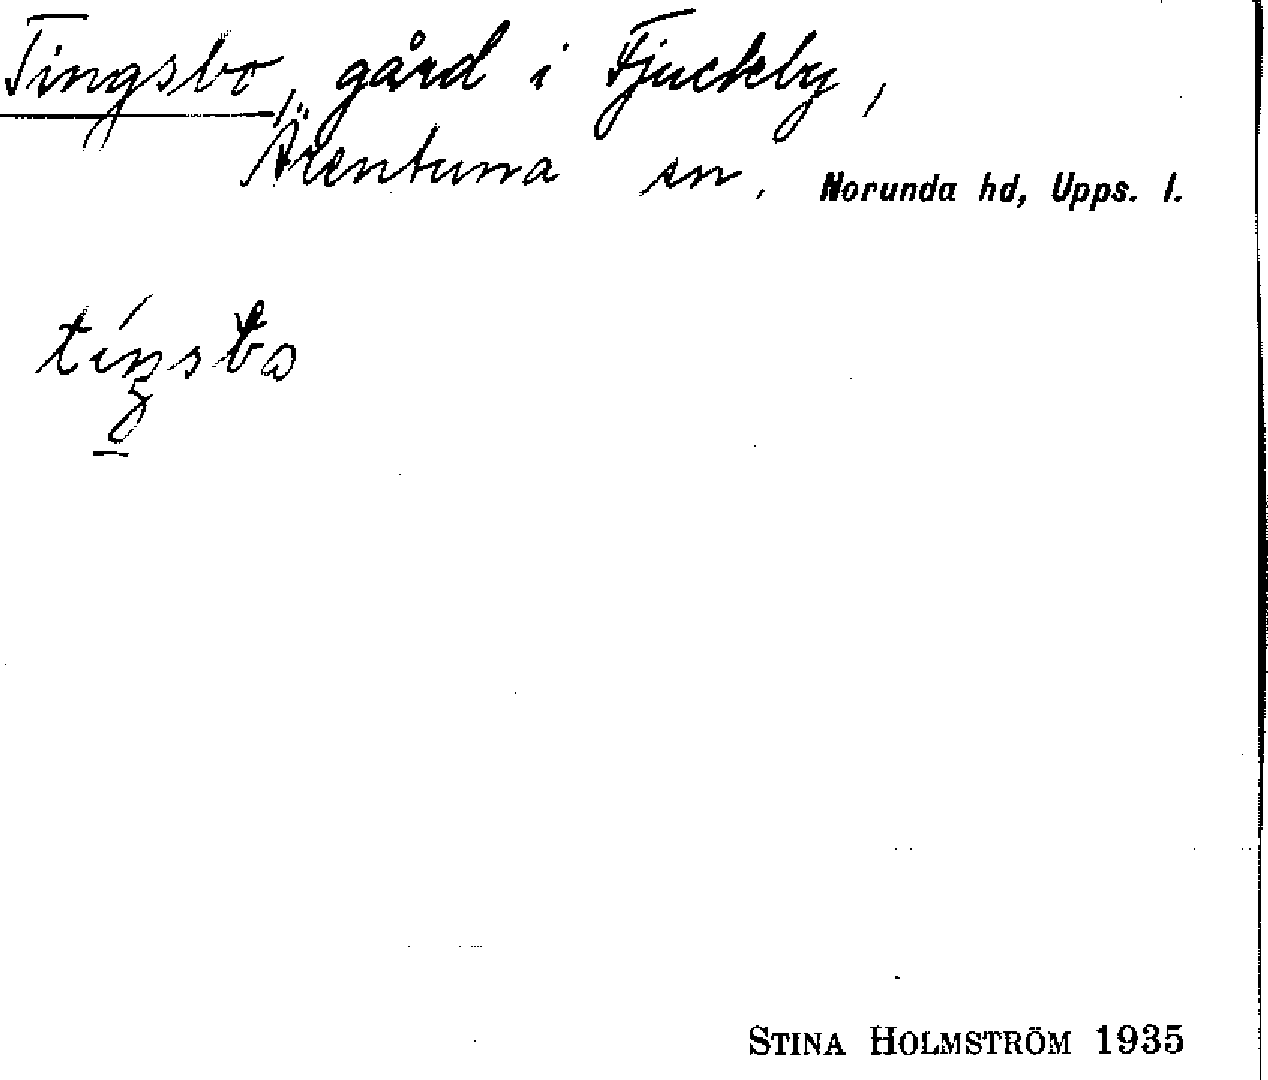 Tingsbo, gård i Fjuckby,
Ärentuna sn. Norunda hd, Upps. l.
STINA HOLMSTRÖM 1935